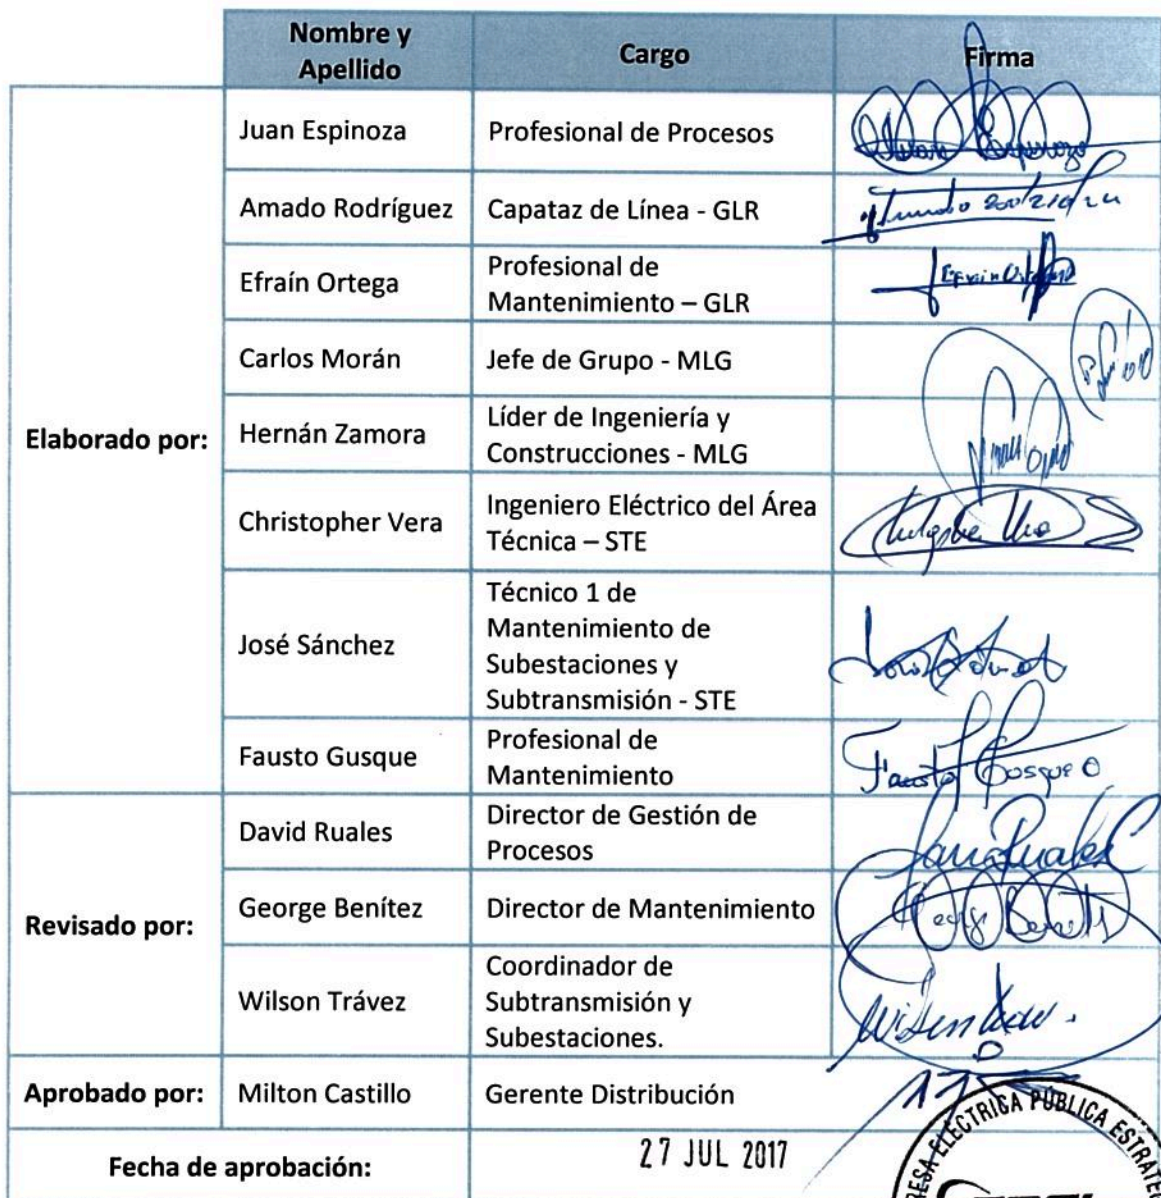 Nombre y
Apellido
Cargo
Firma
Elaborado por:
Juan Espinoza
Profesional de Procesos
Amado Rodríguez
Capataz de Línea - GLR
Efraín Ortega
Profesional de
Mantenimiento – GLR
Carlos Morán
Jefe de Grupo - MLG
Hernán Zamora
Líder de Ingeniería y
Construcciones - MLG
Christopher Vera
Ingeniero Eléctrico del Área
Técnica – STE
José Sánchez
Técnico 1 de
Mantenimiento de
Subestaciones y
Subtransmisión - STE
Fausto Gusque
Profesional de
Mantenimiento
Revisado por:
David Ruales
Director de Gestión de
Procesos
George Benítez
Director de Mantenimiento
Wilson Trávez
Coordinador de
Subtransmisión y
Subestaciones.
Aprobado por:
Milton Castillo
Gerente Distribución
Fecha de aprobación:
27 JUL 2017
ELÉCTRICA PÚBLICA